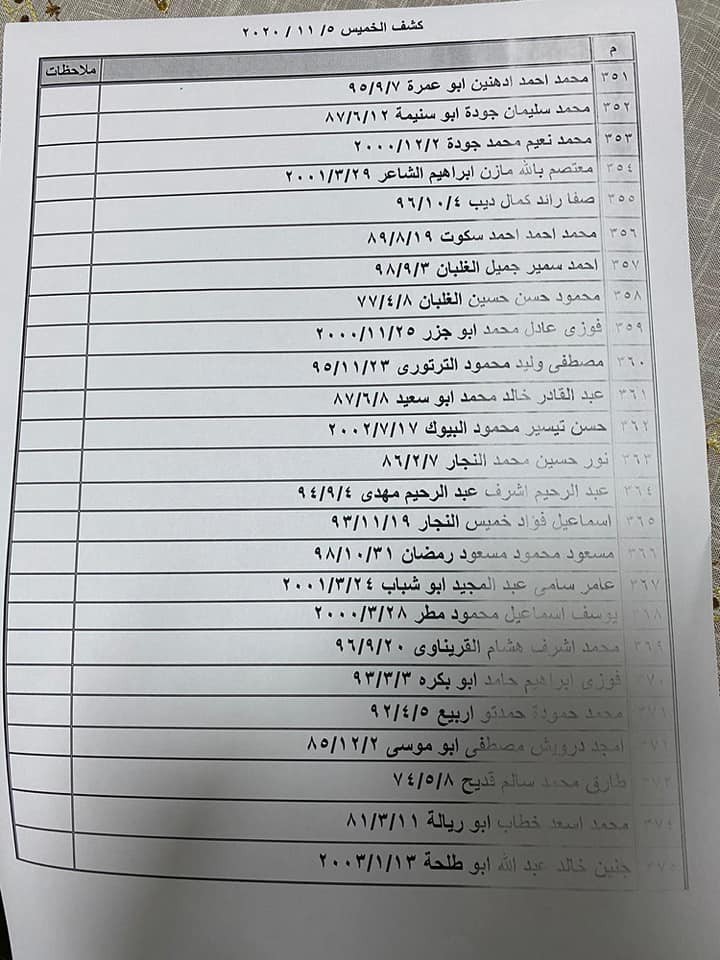 كشف الخميس ٥/ ١١ / ٢٠٢٠
م ملاحظات
٣٥١ محمد احمد ادهنين ابو عمرة ٩٥/٩/٧
٣٥٢ محمد سليمان جودة ابو سنيمة ٨٧/٦/١٢
٣٥٣ محمد نعيم محمد جودة ٢٠٠٠/١٢/٢
٣٥٤ معتصم بالله مازن ابراهيم الشاعر ٢٠٠١/٣/٢٩
٣٥٥ صفا رائد كمال ديب ٩٦/١٠/٤
٣٥٦ محمد احمد احمد سكوت ٨٩/٨/١٩
٣٥٧ احمد سمير جميل الغلبان ٩٨/٩/٣
٣٥٨ محمود حسن حسين الغلبان ٧٧/٤/٨
٣٥٩ فوزى عادل محمد ابو جزر ٢٠٠٠/١١/٢٥
٣٦٠ مصطفى وليد محمود الترتورى ٩٥/١١/٢٣
٣٦١ عبد القادر خالد محمد ابو سعيد ٨٧/٦/٨
٣٦٢ حسن تيسير محمود البيوك ٢٠٠٢/٧/١٧
٣٦٣ نور حسين محمد النجار ٨٦/٢/٧
٣٦٤ عبد الرحيم اشرف عبد الرحيم مهدى ٩٤/٩/٤
٣٦٥ اسماعيل فؤاد خميس النجار ٩٣/١١/١٩
٣٦٦ مسعود محمود مسعود رمضان ٩٨/١٠/٣١
٣٦٧ عامر سامى عبد المجيد ابو شباب ٢٠٠١/٣/٢٤
٣٦٨ يوسف اسماعيل محمود مطر ٢٠٠٠/٣/٢٨
٣٦٩ محمد اشرف هشام القريناوى ٩٦/٩/٢٠
٣٧٠ فوزى ابراهيم حامد ابو بكره ٩٣/٣/٣
٣٧١ محمد حمودة حمدتو اربيع ٩٢/٤/٥
٣٧٢ امجد درويش مصطفى ابو موسى ٨٥/١٢/٢
٣٧٣ طارق محمد سالم قديح ٧٤/٥/٨
٣٧٤ محمد اسعد خطاب ابو ريالة ٨١/٣/١١
٣٧٥ جنين خالد عبد الله ابو طلحة ٢٠٠٣/١/١٣